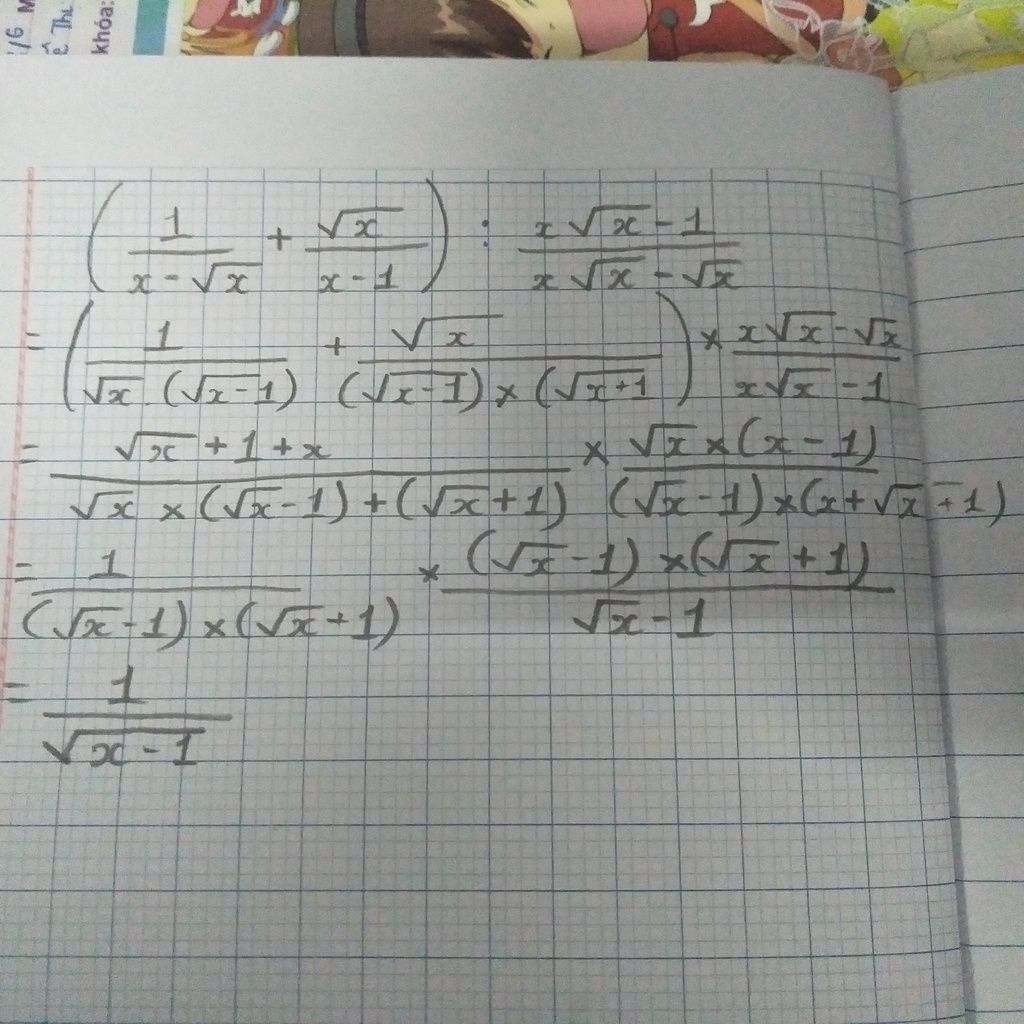 116 M
ê Thu
khóa:
( 1/(x - √x) + √x/(x - 1) ) : (x√x - 1)/(x√x - √x)
= ( 1/(√x . (√(x-1)) + √x/((√(x-1)) × (√(x+1)) ) × (x√x - √x)/(x√x - 1)
= (√x + 1 + x)/(√x × (√x - 1) + (√x + 1)) × (√x × (x - 1))/((√x - 1) × (x + √x + 1))
= 1/((√x - 1) × (√x + 1)) × ((√x - 1) × (√x + 1))/(√x - 1)
= 1/√(x - 1)